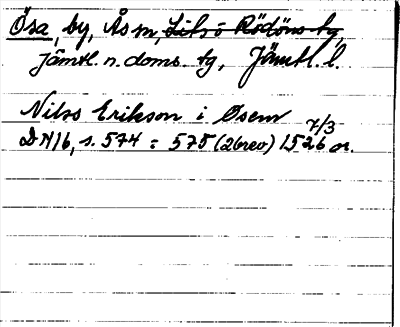 Ösa, by, Ås sn, Lits o Rödöns tg,
jämtl. n. doms. tg, Jämtl. l.
Nils Erikson i Øsem
DN 16, s. 574 = 575 (2 brev) 1526 7/3 or.